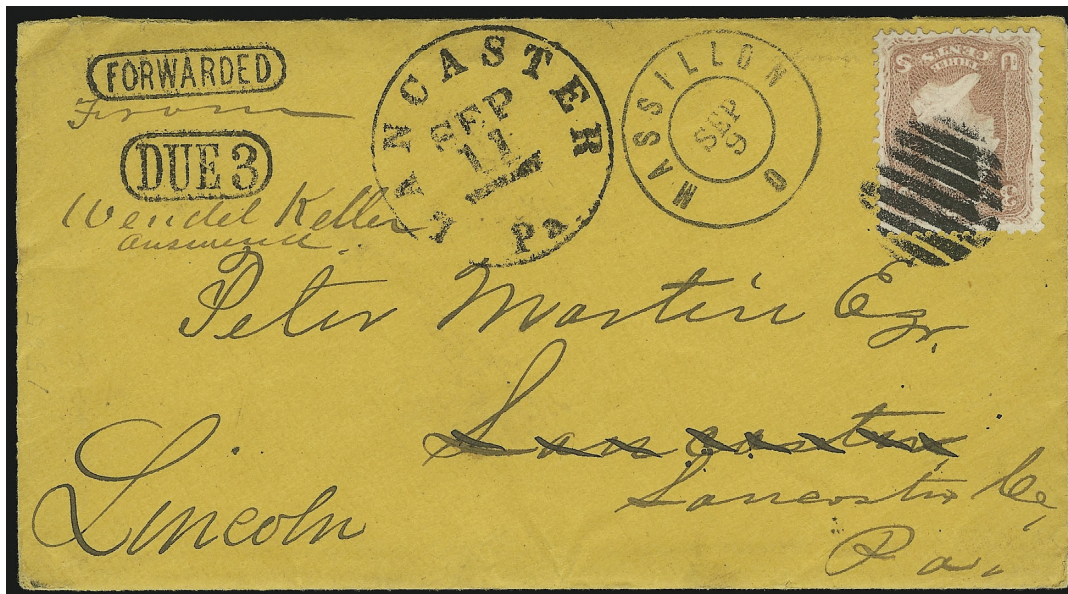 FORWARDED
From
DUE 3
Wendel Keller
answered.
LANCASTER
SEP
11
Pa.
MASSILLON O
SEP
9
U S
THREE CENTS
3
Peter Martin Eqr.
Lancaster
Lancaster Co,
Pa.
Lincoln